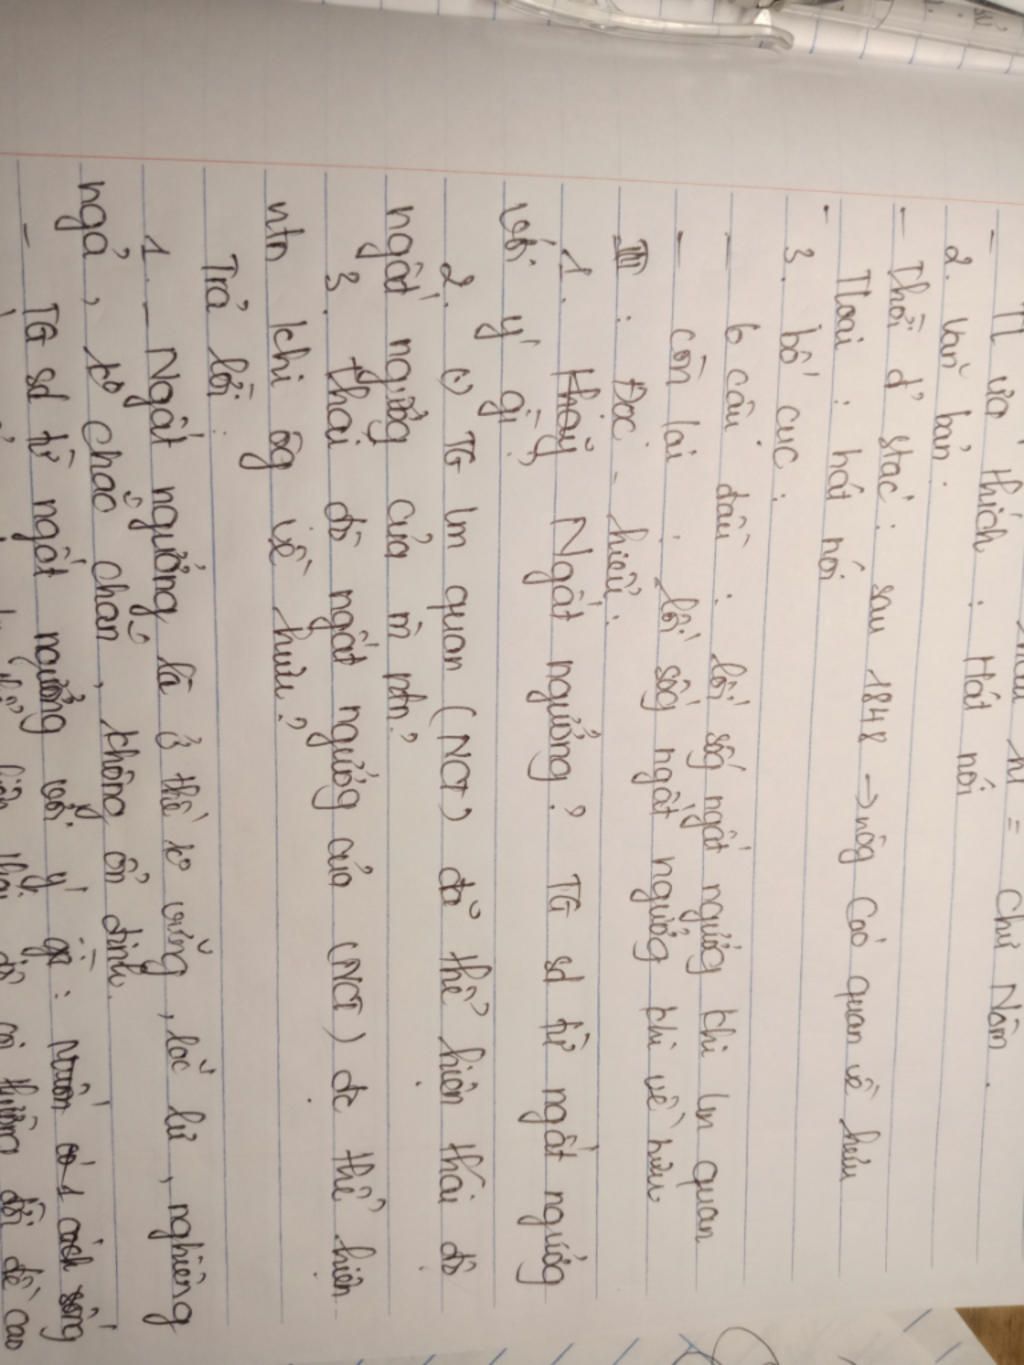 - Tl ưa thích : Hát nói = chữ Nôm .
2. Văn bản .
- Thời đ' stác : sau 1848 → nôg Các quan về hưu
- Tloại : hát nói
3. bố cục :
- 6 câu đầu : lối sốg ngất ngưởg khi lm quan
- còn lại : lối sốg ngất ngưởg khi về hưu
III : Đọc - hiểu :
1. thảy Ngất ngưởng ? TG sd từ ngất ngưởg
với ý gì ?
2. TG lm quan (NCT) đã thể hiện thái độ
ngất ngưởg của m ntn ?
3. thái độ ngất ngưởg của (NCT) đc thể hiện
ntn khi ôg về hưu ?
Trả lời :
1. - Ngất ngưởng là ở thế ko vững , lắc lư , nghiêng
ngả , ko chắc chắn , không ổn định .
- TG sd từ ngất ngưởng với ý gì : muốn có 1 cách sống